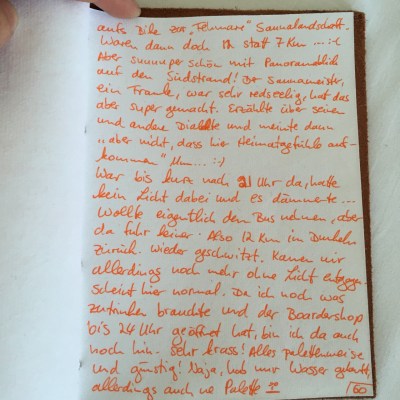 aufs Bike zur „Fehmare" Saunalandschaft.
Waren dann doch 12 statt 7 Km ... :-(
Aber suuuuper schön mit Panoramablick
auf den Südstrand! Der Saunameister,
ein Franke, war sehr redselig, hat das
aber super gemacht. Erzählte über seinen
und andere Dialekte und meinte dann
„aber nicht, dass hier Heimatgefühle auf-
kommen" Mm... :-)
War bis kurz nach 21 Uhr da, hatte
kein Licht dabei und es dämmerte...
Wollte eigentlich den Bus nehmen, aber
da fuhr keiner. Also 12 Km im Dunkeln
zurück. Wieder geschwitzt. Kamen mir
allerdings noch mehr ohne Licht entgegen.
Scheint hier normal. Da ich noch was
zu trinken brauchte und der Boardershop
bis 24 Uhr geöffnet hat, bin ich da auch
noch hin. Sehr krass! Alles palettenweise
und günstig! Naja, hab mir Wasser gekauft,
allerdings auch ne Palette
60